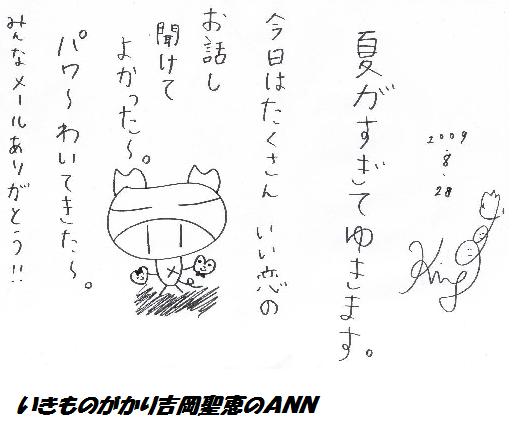 夏がすぎてゆきます。
2009
8
28
King
今日はたくさん いい恋の
お話し
聞けて
よかった〜。
パワ〜わいてきた〜。
みんなメールありがとう!!
いきものがかり吉岡聖恵のANN